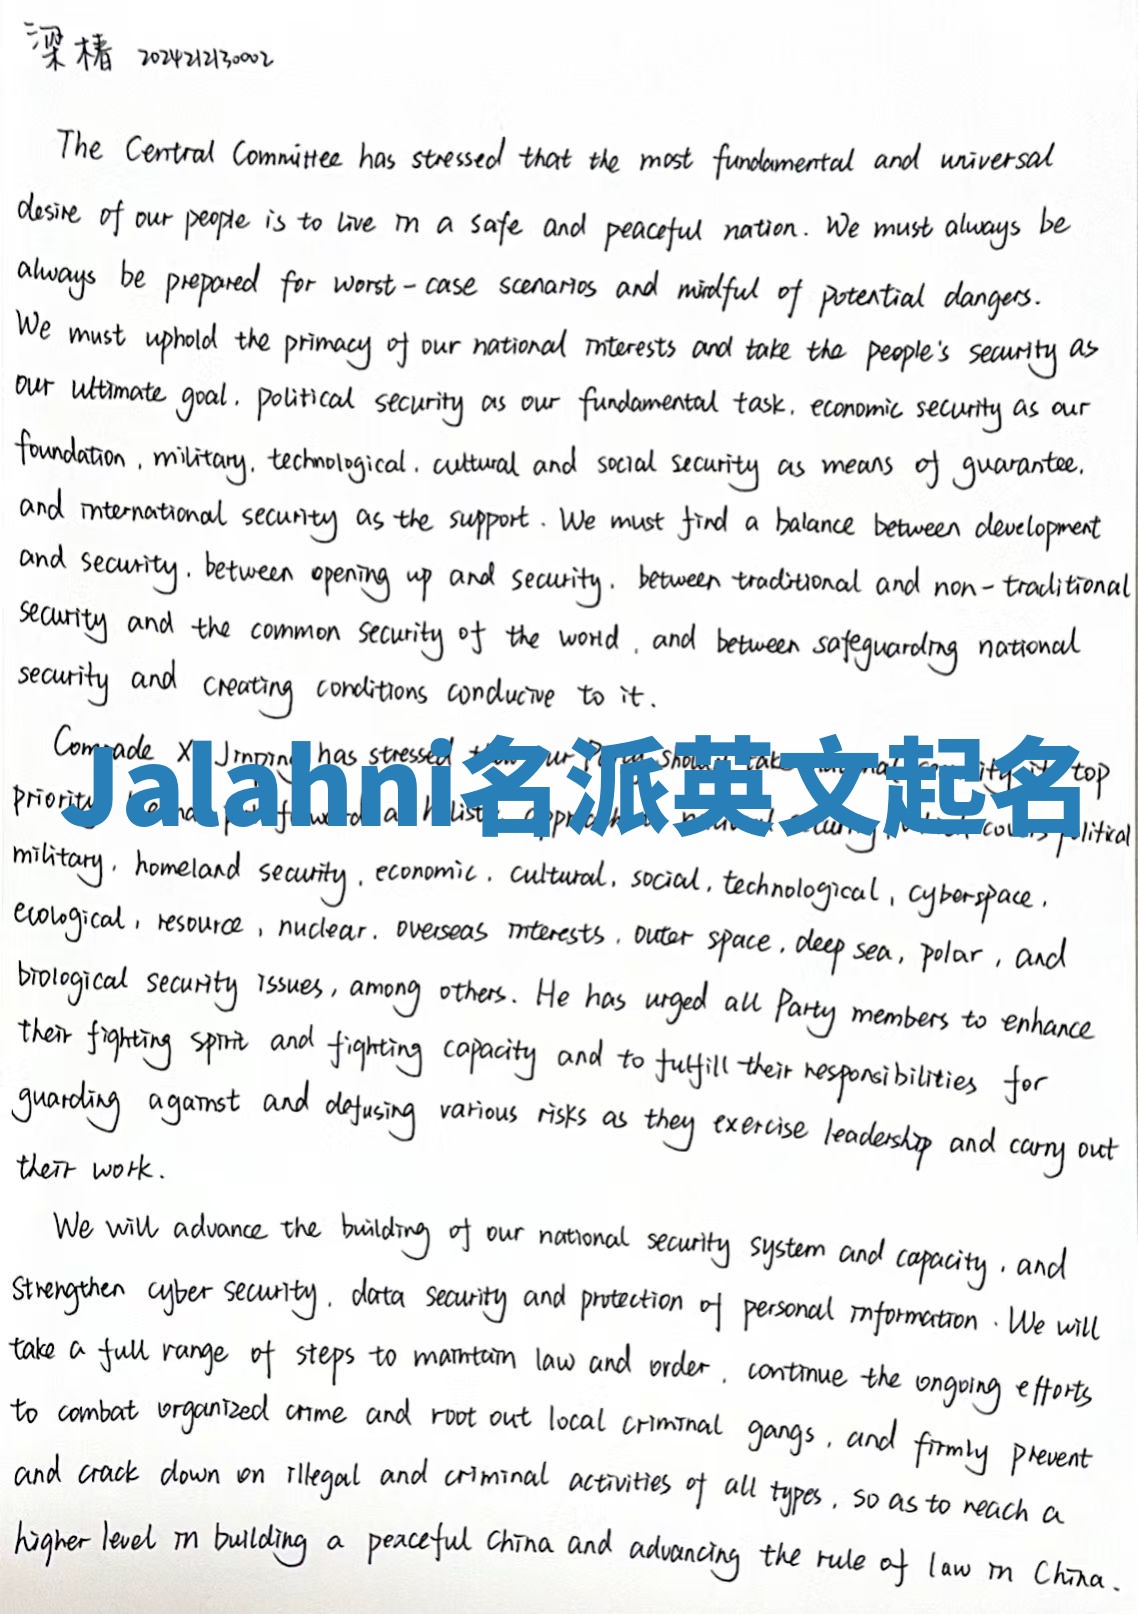 梁椿 2024212130002
The Central Committee has stressed that the most fundamental and universal
desire of our people is to live in a safe and peaceful nation. We must always be
always be prepared for worst-case scenarios and mindful of potential dangers.
We must uphold the primacy of our national interests and take the people's security as
our ultimate goal, political security as our fundamental task, economic security as our
foundation, military, technological, cultural and social security as means of guarantee,
and international security as the support. We must find a balance between development
and security, between opening up and security, between traditional and non-traditional
security and the common security of the world, and between safeguarding national
security and creating conditions conducive to it.
Comrade Xi Jinping has stressed our Party should take top
Jalahni名派英文起名
priority political
military, homeland security, economic, cultural, social, technological, cyberspace,
ecological, resource, nuclear, overseas interests, outer space, deep sea, polar, and
biological security issues, among others. He has urged all Party members to enhance
their fighting spirit and fighting capacity and to fulfill their responsibilities for
guarding against and defusing various risks as they exercise leadership and carry out
their work.
We will advance the building of our national security system and capacity, and
strengthen cyber security, data security and protection of personal information. We will
take a full range of steps to maintain law and order, continue the ongoing efforts
to combat organized crime and root out local criminal gangs, and firmly prevent
and crack down on illegal and criminal activities of all types, so as to reach a
higher level in building a peaceful China and advancing the rule of law in China.